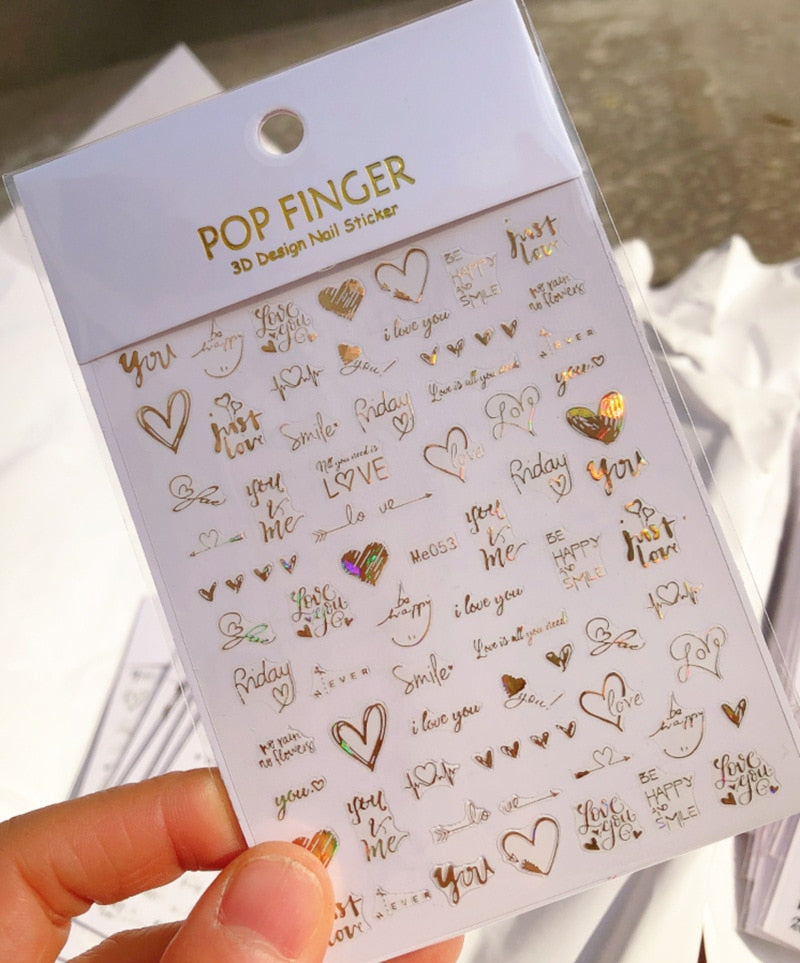 POP FINGER
3D Design Nail Sticker
just
love
BE
HAPPY
AND
SMILE
Love
you
be
happy
you
i love you
no rain
no flowers
you
Love is all you need
you
just
love
Smile
Friday
Love
All you need is
LOVE
love
Friday
you
you
&
me
lo ve
Me053
you
&
me
BE
HAPPY
AND
SMILE
just
love
Love
you
be
happy
i love you
Love is all you need
Friday
Smile
you
love
Love
no rain
no flowers
i love you
be
happy
you
you
&
me
lo ve
Love
you
BE
HAPPY
AND
SMILE
Love
you
you
just
love